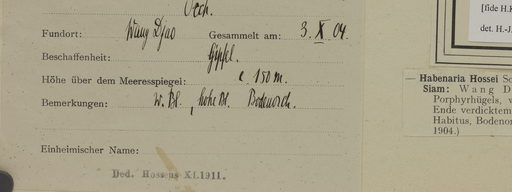 Orch.
Fundort: Wang Djao Gesammelt am: 3. X. 04.
Beschaffenheit: Gipfel.
Höhe über dem Meeresspiegel: c 150 m.
Bemerkungen: w. Bl., hohe Bl. Bodenorch.
Einheimischer Name:
Ded. Hosseus XI.1911.
[fide H.K
det. H.-J.
— Habenaria Hossei Sc
Siam: Wang D
Porphyrhügels, v
Ende verdicktem
Habitus, Bodenor
1904.)